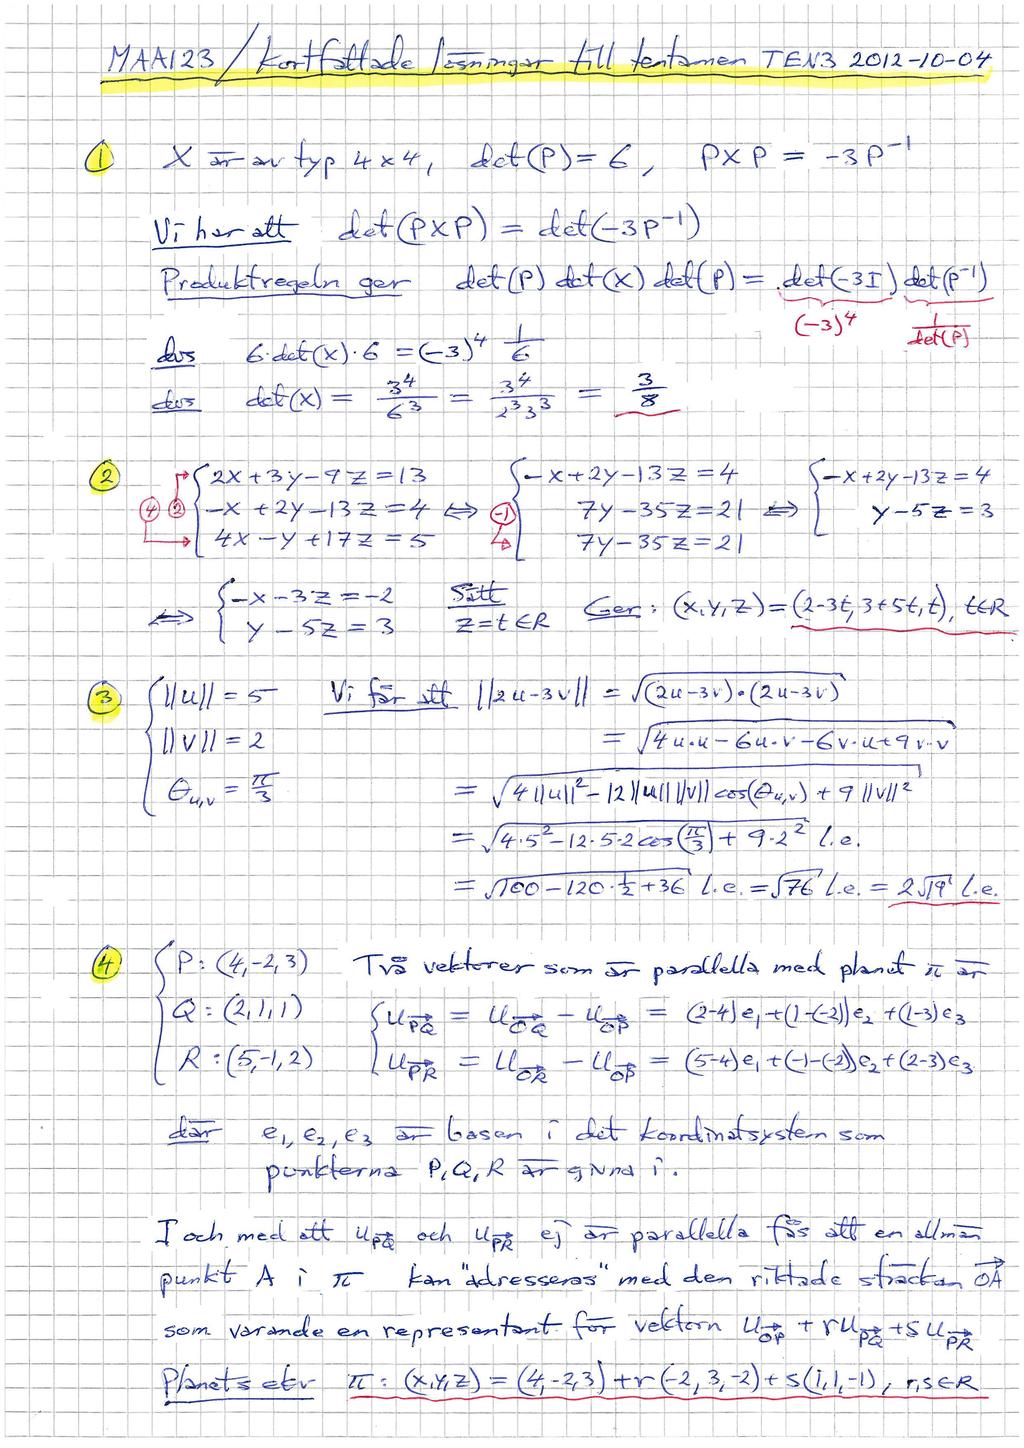 MAA123 / Kortfattade lösningar till tentamen TEN3 2012-10-04
① X är av typ 4×4, det(P) = 6, PXP = -3P⁻¹
Vi har att det(PXP) = det(-3P⁻¹)
Produktregeln ger det(P) det(X) det(P) = det(-3I) det(P⁻¹)
(-3)⁴ 1/det(P)
dvs 6·det(X)·6 = (-3)⁴ 1/6
dvs det(X) = 3⁴/6³ = 3⁴/2³3³ = 3/8
② { 2x+3y-9z=13 { -x+2y-13z=4 { -x+2y-13z=4
④ ② -x+2y-13z=4 ⇔ (-1) 7y-35z=21 ⇔ y-5z=3
4x-y+17z=5 7y-35z=21
⇔ { -x-3z=-2 Sätt Ger: (x,y,z)=(2-3t,3+5t,t), t∈R
y-5z=3 z=t∈R
③ { ||u|| = 5 Vi får att ||2u-3v|| = √((2u-3v)•(2u-3v))
||v|| = 2 = √(4u·u-6u·v-6v·u+9v·v)
θu,v = π/3 = √(4||u||²-12||u||||v||cos(θu,v)+9||v||²)
= √(4·5²-12·5·2cos(π/3)+9·2²) l.e.
= √(100-120·½+36) l.e. = √76 l.e. = 2√19 l.e.
④ { P: (4,-2,3) Två vektorer som är parallella med planet π är
Q: (2,1,1) { u_PQ→ = u_OQ→ - u_OP→ = (2-4)e₁+(1-(-2))e₂+(1-3)e₃
R: (5,-1,2) u_PR→ = u_OR→ - u_OP→ = (5-4)e₁+(-1-(-2))e₂+(2-3)e₃
där e₁, e₂, e₃ är basen i det koordinatsystem som
punkterna P, Q, R är givna i.
I och med att u_PQ→ och u_PR→ ej är parallella fås att en allmän
punkt A i π kan "adresseras" med den riktade sträckan OA→
som varande en representant för vektorn u_OP→ + r u_PQ→ + s u_PR→
Planets ekv π: (x,y,z) = (4,-2,3)+r(-2,3,-2)+s(1,1,-1), r,s∈R